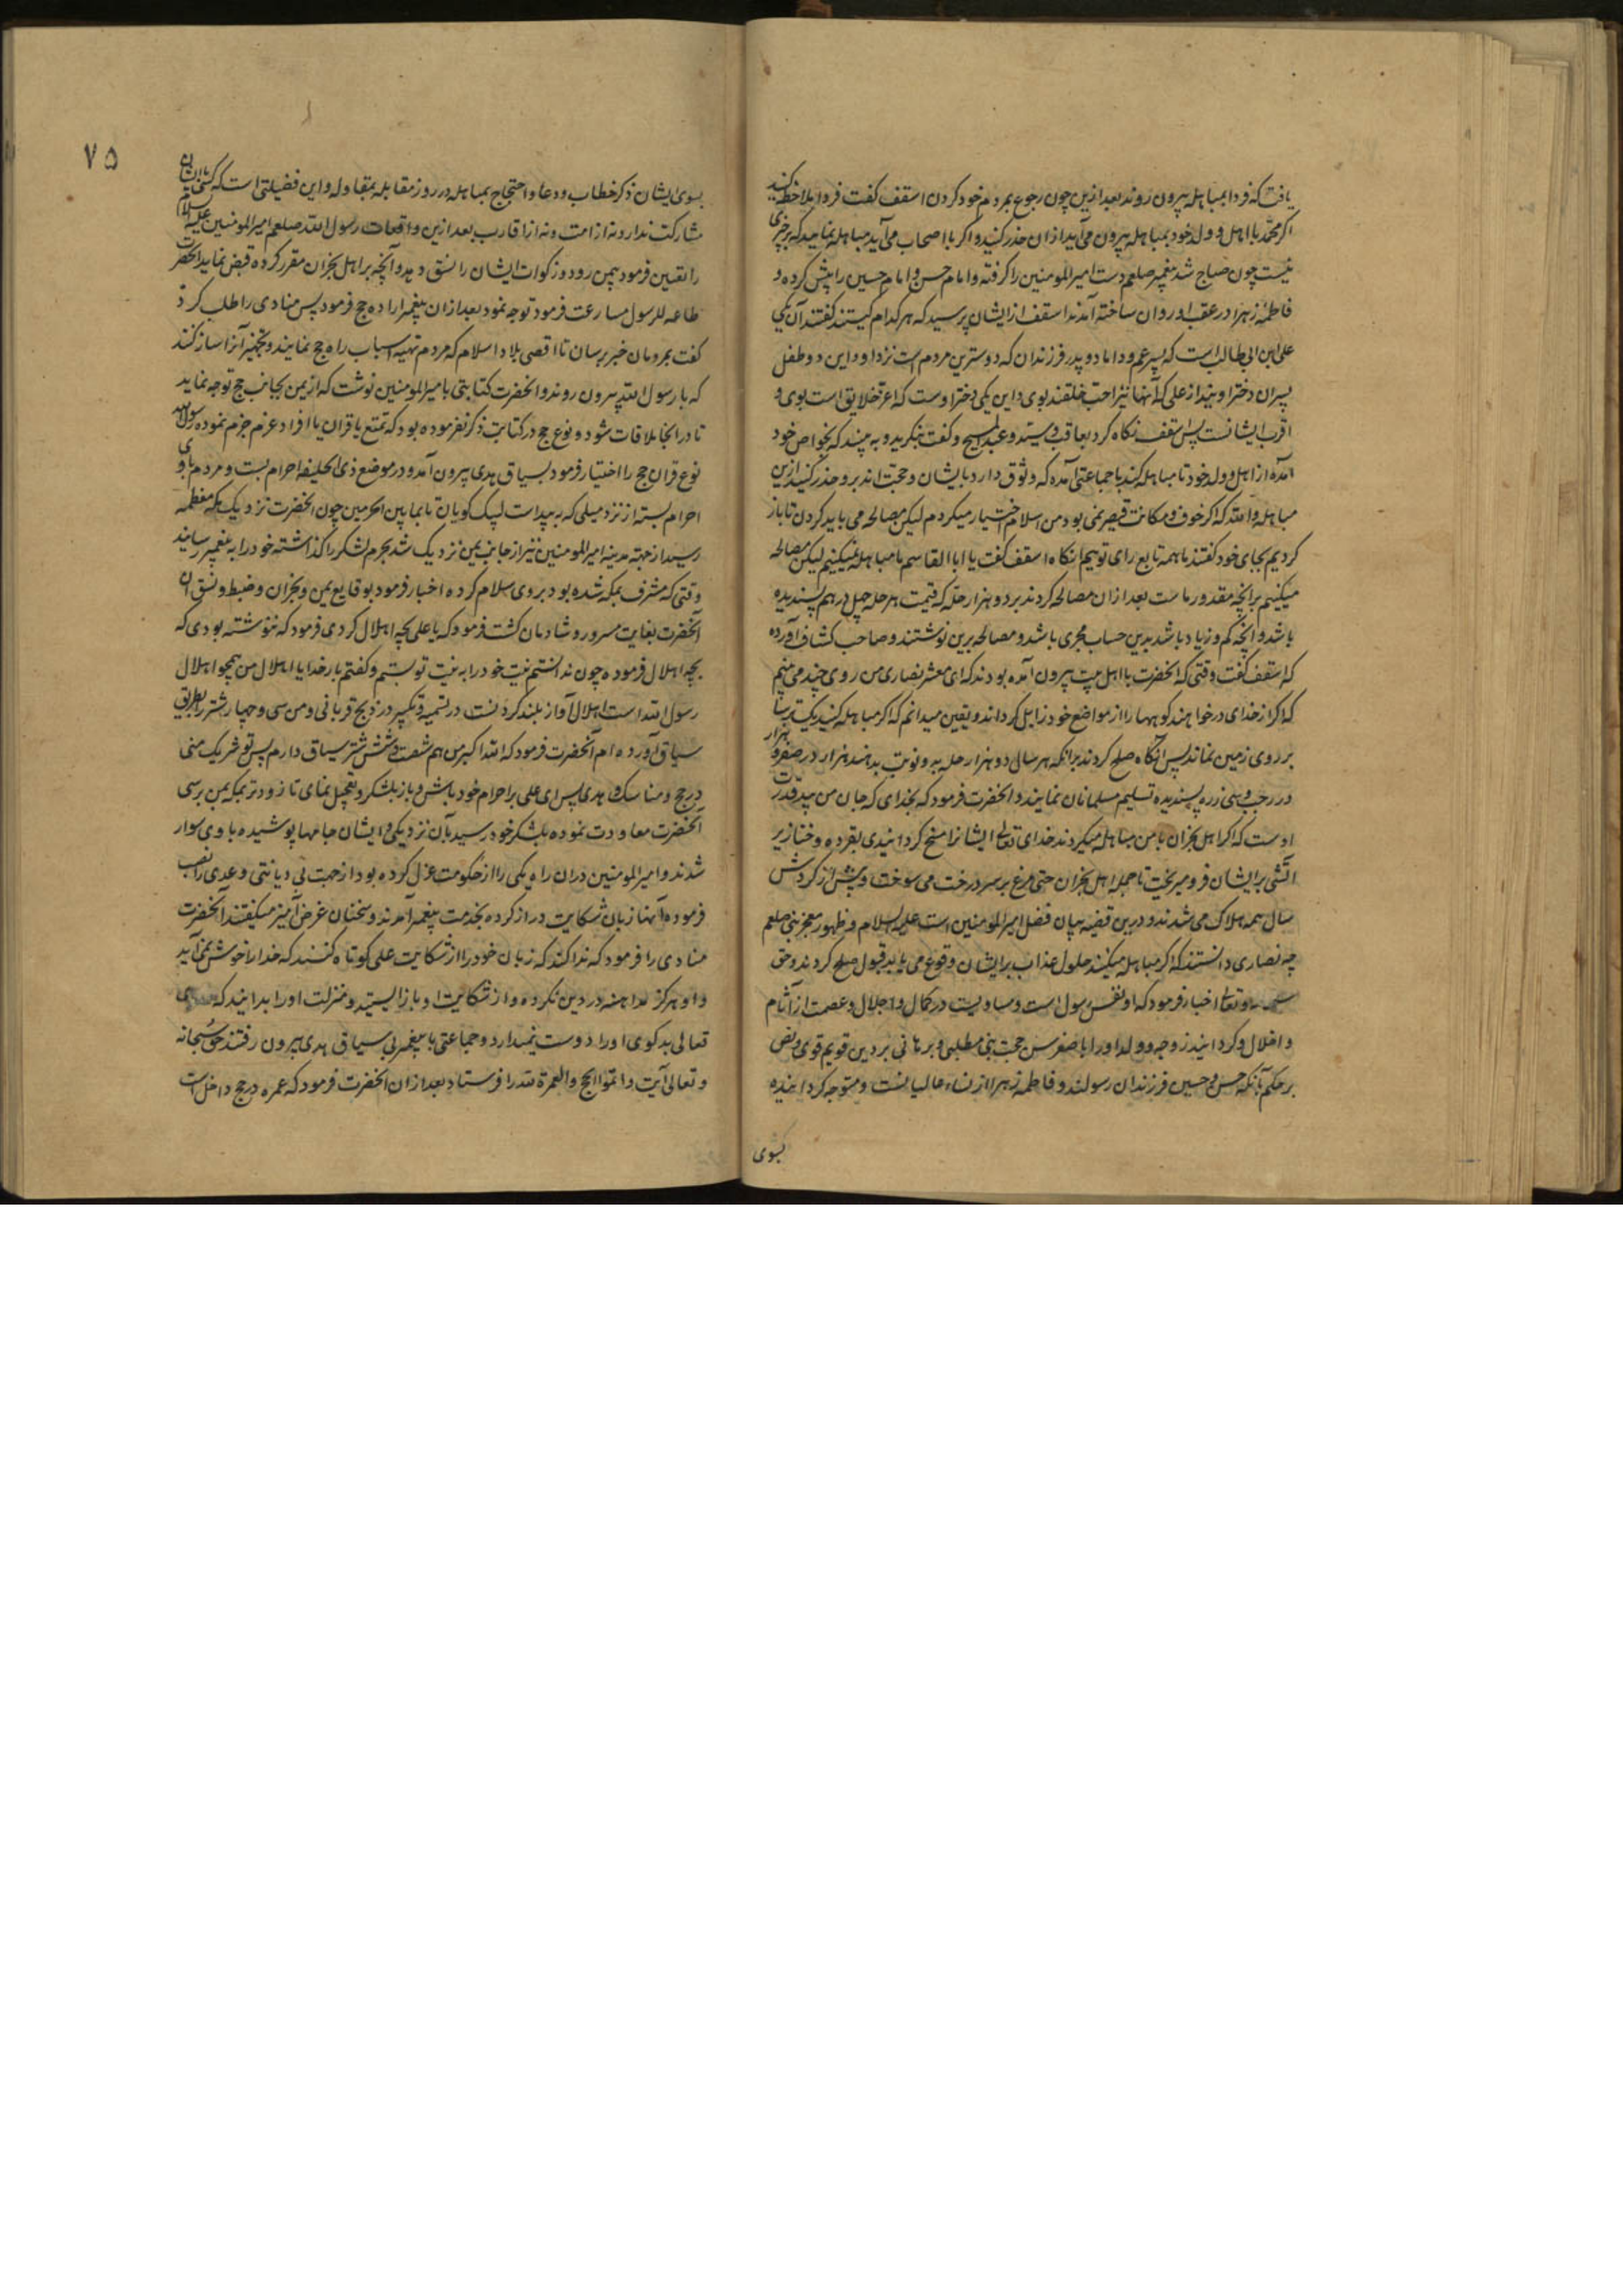 یافت که فردا بمباهله بیرون روند بعد ازین چون رجوع بمردم خود کردن اسقف گفت فردا ملاحظه کنید
اگر محمد با اهل و ولد خود بمباهله بیرون می آید از ان حذر کنید و اگر با اصحاب می آید مباهله نمایید که بر چیزی
نیست چون صباح شد پیغمبر صلعم دست امیرالمومنین را گرفته و امام حسن و امام حسین را پیش کرده و
فاطمه زهرا در عقب او روان ساخته آمدند اسقف از ایشان پرسید که هر کدام کیستند گفتند آن یکی
علی ابن ابی طالب است که پسر عم و داماد و پدر فرزندان که دوسترین مردم است نزد او و این دو طفل
پسران دختر اویند از علی که آنها نیز احب خلقند بوی و این یکی دختر اوست که اعز خلایق است بوی و
اقرب ایشانست پس اسقف نگاه کرد بعاقب و سید و عبدالمسیح و گفت بنگرید و به بینید که بخواص خود
آمده از اهل و ولد خود تا مباهله کند با جماعتی آمده که وثوق دارد بایشان و حجت اند برو حذر کنید ازین
مباهله والله که اگر خوف و مکانت قیصر نمی بود من اسلام اختیار میکردم لیکن مصالحه می باید کردن تا باز
گردیم بجای خود گفتند ما همه تابع رای توییم انگاه اسقف گفت یا ابا القاسم ما مباهله نمیکنیم لیکن مصالحه
میکنیم بر انچه مقدور ماست بعد از ان مصالحه کردند بر دو هزار حله که قیمت هر حله چهل درهم پسندیده
باشد و آنچه کم و زیاد باشد بدین حساب مجری باشد و مصالحه برین نوشتند و صاحب کشاف آورده
که اسقف گفت وقتی که انحضرت با اهل بیت بیرون آمده بودند که ای معشر نصاری من روی چند می بینم
که اگر از خدای درخواهند کوهها را از مواضع خود زایل گرداند و یقین میدانم که اگر مباهله کنید یک ترسا
بر روی زمین نماند پس انگاه صلح کردند برانکه هر سال دو هزار حله بدو نوبت بدهند هزار در صفر و هزار
در رجب و سی زره پسندیده تسلیم مسلمانان نمایند و انحضرت فرمود که بخدای که جان من بید قدرت
اوست که اگر اهل نجران با من مباهله میکردند خدای تعالی ایشانرا مسخ گردانیدی بقرده و خنازیر
اتشی بر ایشان فرو میریخت تا جمله اهل نجران حتی مرغ بر سر درخت می سوخت و پیش از گردش
سال همه هلاک می شدند و درین قضیه بیان فضل امیرالمومنین است علیه السلام و ظهور معجز نبی صلعم
چه نصاری دانستند که اگر مباهله میکنند حلول عذاب بر ایشان وقوع می یابد قبول صلح کردند و حق
سبحانه و تعالی اخبار فرمود که او نفس رسول است و مساویست در کمال و اجلال و عصمت از آثام
و اخلال و گردانید زوجه و ولد او را با صغر سن حجت نبی مطلبی و برهانی بر دین قویم قوی و نص
بر حکم بآنکه حسن و حسین فرزندان رسولند و فاطمه زهرا از نساء عالمیانست و متوجه گردانیده
بسوی
۷۵
بسوی ایشان ذکر خطاب و دعا و احتجاج بمباهله در روز مقابله بمقاوله و این فضیلتی است که کسی با ایشان
مشارکت ندارد نه از امت و نه از اقارب بعد ازین واقعات رسول الله صلعم امیرالمومنین علیه السلام
را تعیین فرمود بیمن رود و زکوات ایشان را نسق دهد و آنچه بر اهل نجران مقرر کرده قبض نماید انحضرت
طاعه للرسول مسارعت فرمود توجه نمود بعد از ان پیغمبر اراده حج فرمود پس منادی را طلب کرد
گفت بمردمان خبر برسان تا اقصی بلاد اسلام که مردم تهیه اسباب راه حج نمایند و تجهیز آنرا ساز کنند
که با رسول الله بیرون روند و انحضرت کتابتی بامیرالمومنین نوشت که از یمن بجانب حج توجه نماید
تا در انجا ملاقات شود و نوع حج در کتابت ذکر نفرموده بود که تمتع یا قران یا افراد عزم جزم نموده رسول الله
نوع قران حج را اختیار فرمود بسیاق هدی بیرون آمد و در موضع ذی الحلیفه احرام بست و مردم با وی
احرام بسته از نزد میلی که ببیداست لبیک گویان تا بمابین الحرمین چون انحضرت نزدیک مکه معظمه
رسید از جهة مدینه امیرالمومنین نیز از جانب یمن نزدیک شد بحرم لشکر را گذاشته خود را به پیغمبر رسانید
وقتی که مشرف بمکه شده بود بر وی سلام کرده اخبار فرمود بوقایع یمن و نجران و ضبط و نسق ان
آنحضرت بغایت مسرور و شادمان گشت فرمود که یا علی بچه اهلال کردی فرمود که ننوشته بودی که
بچه اهلال فرموده چون ندانستم نیت خود را به نیت تو بستم و گفتم بار خدایا اهلال من همچو اهلال
رسول الله است اهلال آواز بلند کردنست در تسمیه و تکبیر در ذبح قربانی و من سی و چهار شتر بطریق
سیاق آورده ام آنحضرت فرمود که الله اکبر من هم شصت و شش شتر سیاق دارم پس تو شریک منی
در حج و مناسک و هدی پس ای علی بر احرام خود باش و باز بلشکر و تعجیل نمای تا زودتر بمکه بمن برسی
آنحضرت معاودت نموده بلشکر خود رسید بآن نزدیکی و ایشان جامها پوشیده با وی سوار
شدند و امیرالمومنین دران راه یکی را از حکومت عزل کرده بود از جهت بی دیانتی و عدی را نصب
فرموده آنها زبان شکایت دراز کرده بخدمت پیغمبر آمدند و سخنان غرض آمیز میگفتند آنحضرت
منادی را فرمود که ندا کند که زبان خود را از شکایت علی کوتاه کنید که خدا را خوش نمی آید
و او هرگز مداهنه در دین نکرده و از شکایت او باز ایستید و منزلت او را بدانید که
تعالی بدگوی او را دوست نمیدارد و جماعتی با پیغمبر بی سیاق هدی بیرون رفتند حق سبحانه
و تعالی آیت و اتموا الحج والعمرة لله را فرستاد بعد از ان انحضرت فرمود که عمره در حج داخل است